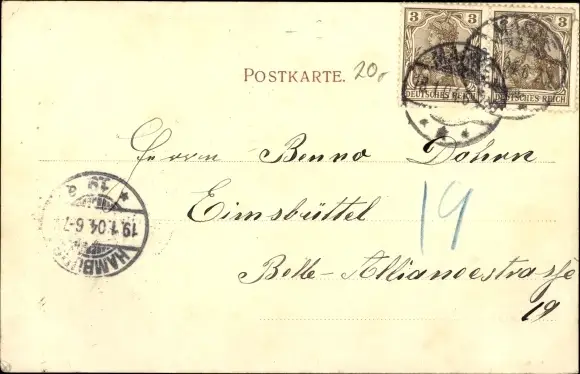 3 3
DEUTSCHES REICH DEUTSCHES REICH
POSTKARTE. 20,-
Herrn Benno Dohrn
Eimsbüttel
19
Belle-Alliancestrasse
19
HAMBURG
19.1.04.6-7